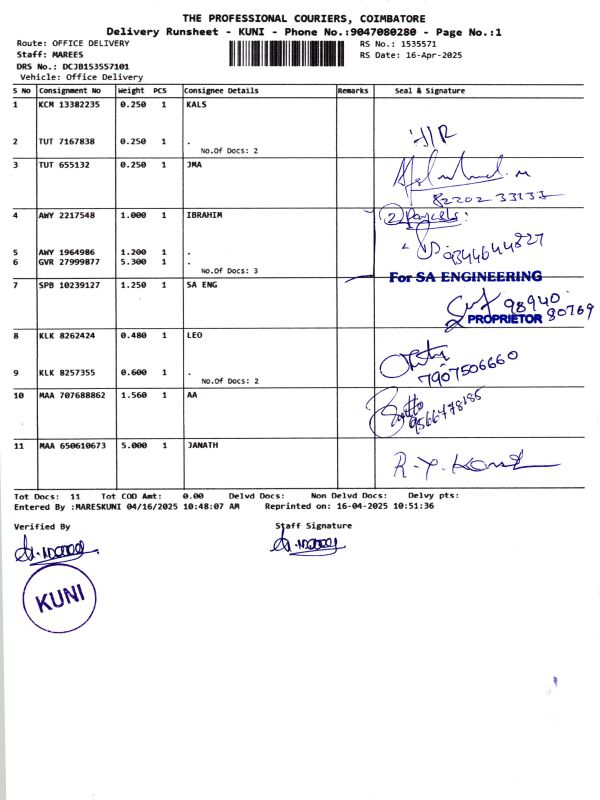 THE PROFESSIONAL COURIERS, COIMBATORE
Delivery Runsheet - KUNI - Phone No.:9047080280 - Page No.:1
Route: OFFICE DELIVERY RS No.: 1535571
Staff: MAREES RS Date: 16-Apr-2025
DRS No.: DCJB153557101
Vehicle: Office Delivery
S No Consignment No Weight PCS Consignee Details Remarks Seal & Signature
1 KCM 13382235 0.250 1 KALS
2 TUT 7167838 0.250 1 .
No.Of Docs: 2
3 TUT 655132 0.250 1 JMA
82202 33137
4 AWY 2217548 1.000 1 IBRAHIM
2 Parcels:
5 AWY 1964986 1.200 1 .
9344644827
6 GVR 27999877 5.300 1 .
No.Of Docs: 3
For SA ENGINEERING
7 SPB 10239127 1.250 1 SA ENG
98940 80769
PROPRIETOR
8 KLK 8262424 0.480 1 LEO
7907506660
9 KLK 8257355 0.600 1 .
No.Of Docs: 2
10 MAA 707688862 1.560 1 AA
9566478185
11 MAA 650610673 5.000 1 JANATH
Tot Docs: 11 Tot COD Amt: 0.00 Delvd Docs: Non Delvd Docs: Delvy pts:
Entered By :MARESKUNI 04/16/2025 10:48:07 AM Reprinted on: 16-04-2025 10:51:36
Verified By Staff Signature
KUNI